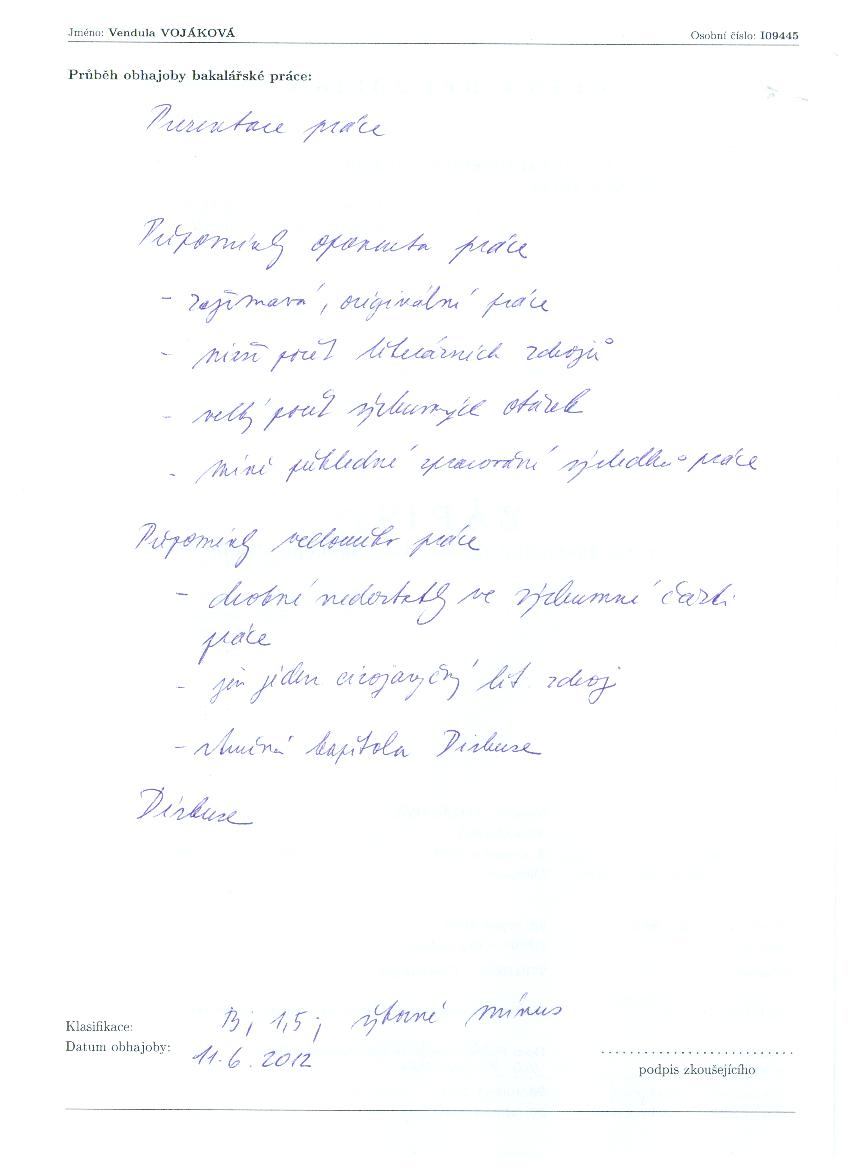 Jméno: Vendula VOJÁKOVÁ Osobní číslo: I09445
Průběh obhajoby bakalářské práce:
Prezentace práce
Připomínky oponenta práce
- zajímavá, originální práce
- nižší počet literárních zdrojů
- velký počet výzkumných otázek
- méně přehledné zpracování výsledků práce
Připomínky vedoucího práce
- drobné nedostatky ve výzkumné části
práce
- jen jeden cizojazyčný lit. zdroj
- stručná kapitola Diskuse
Diskuse
Klasifikace: B; 1,5; výborné mínus
Datum obhajoby: 11.6.2012
podpis zkoušejícího